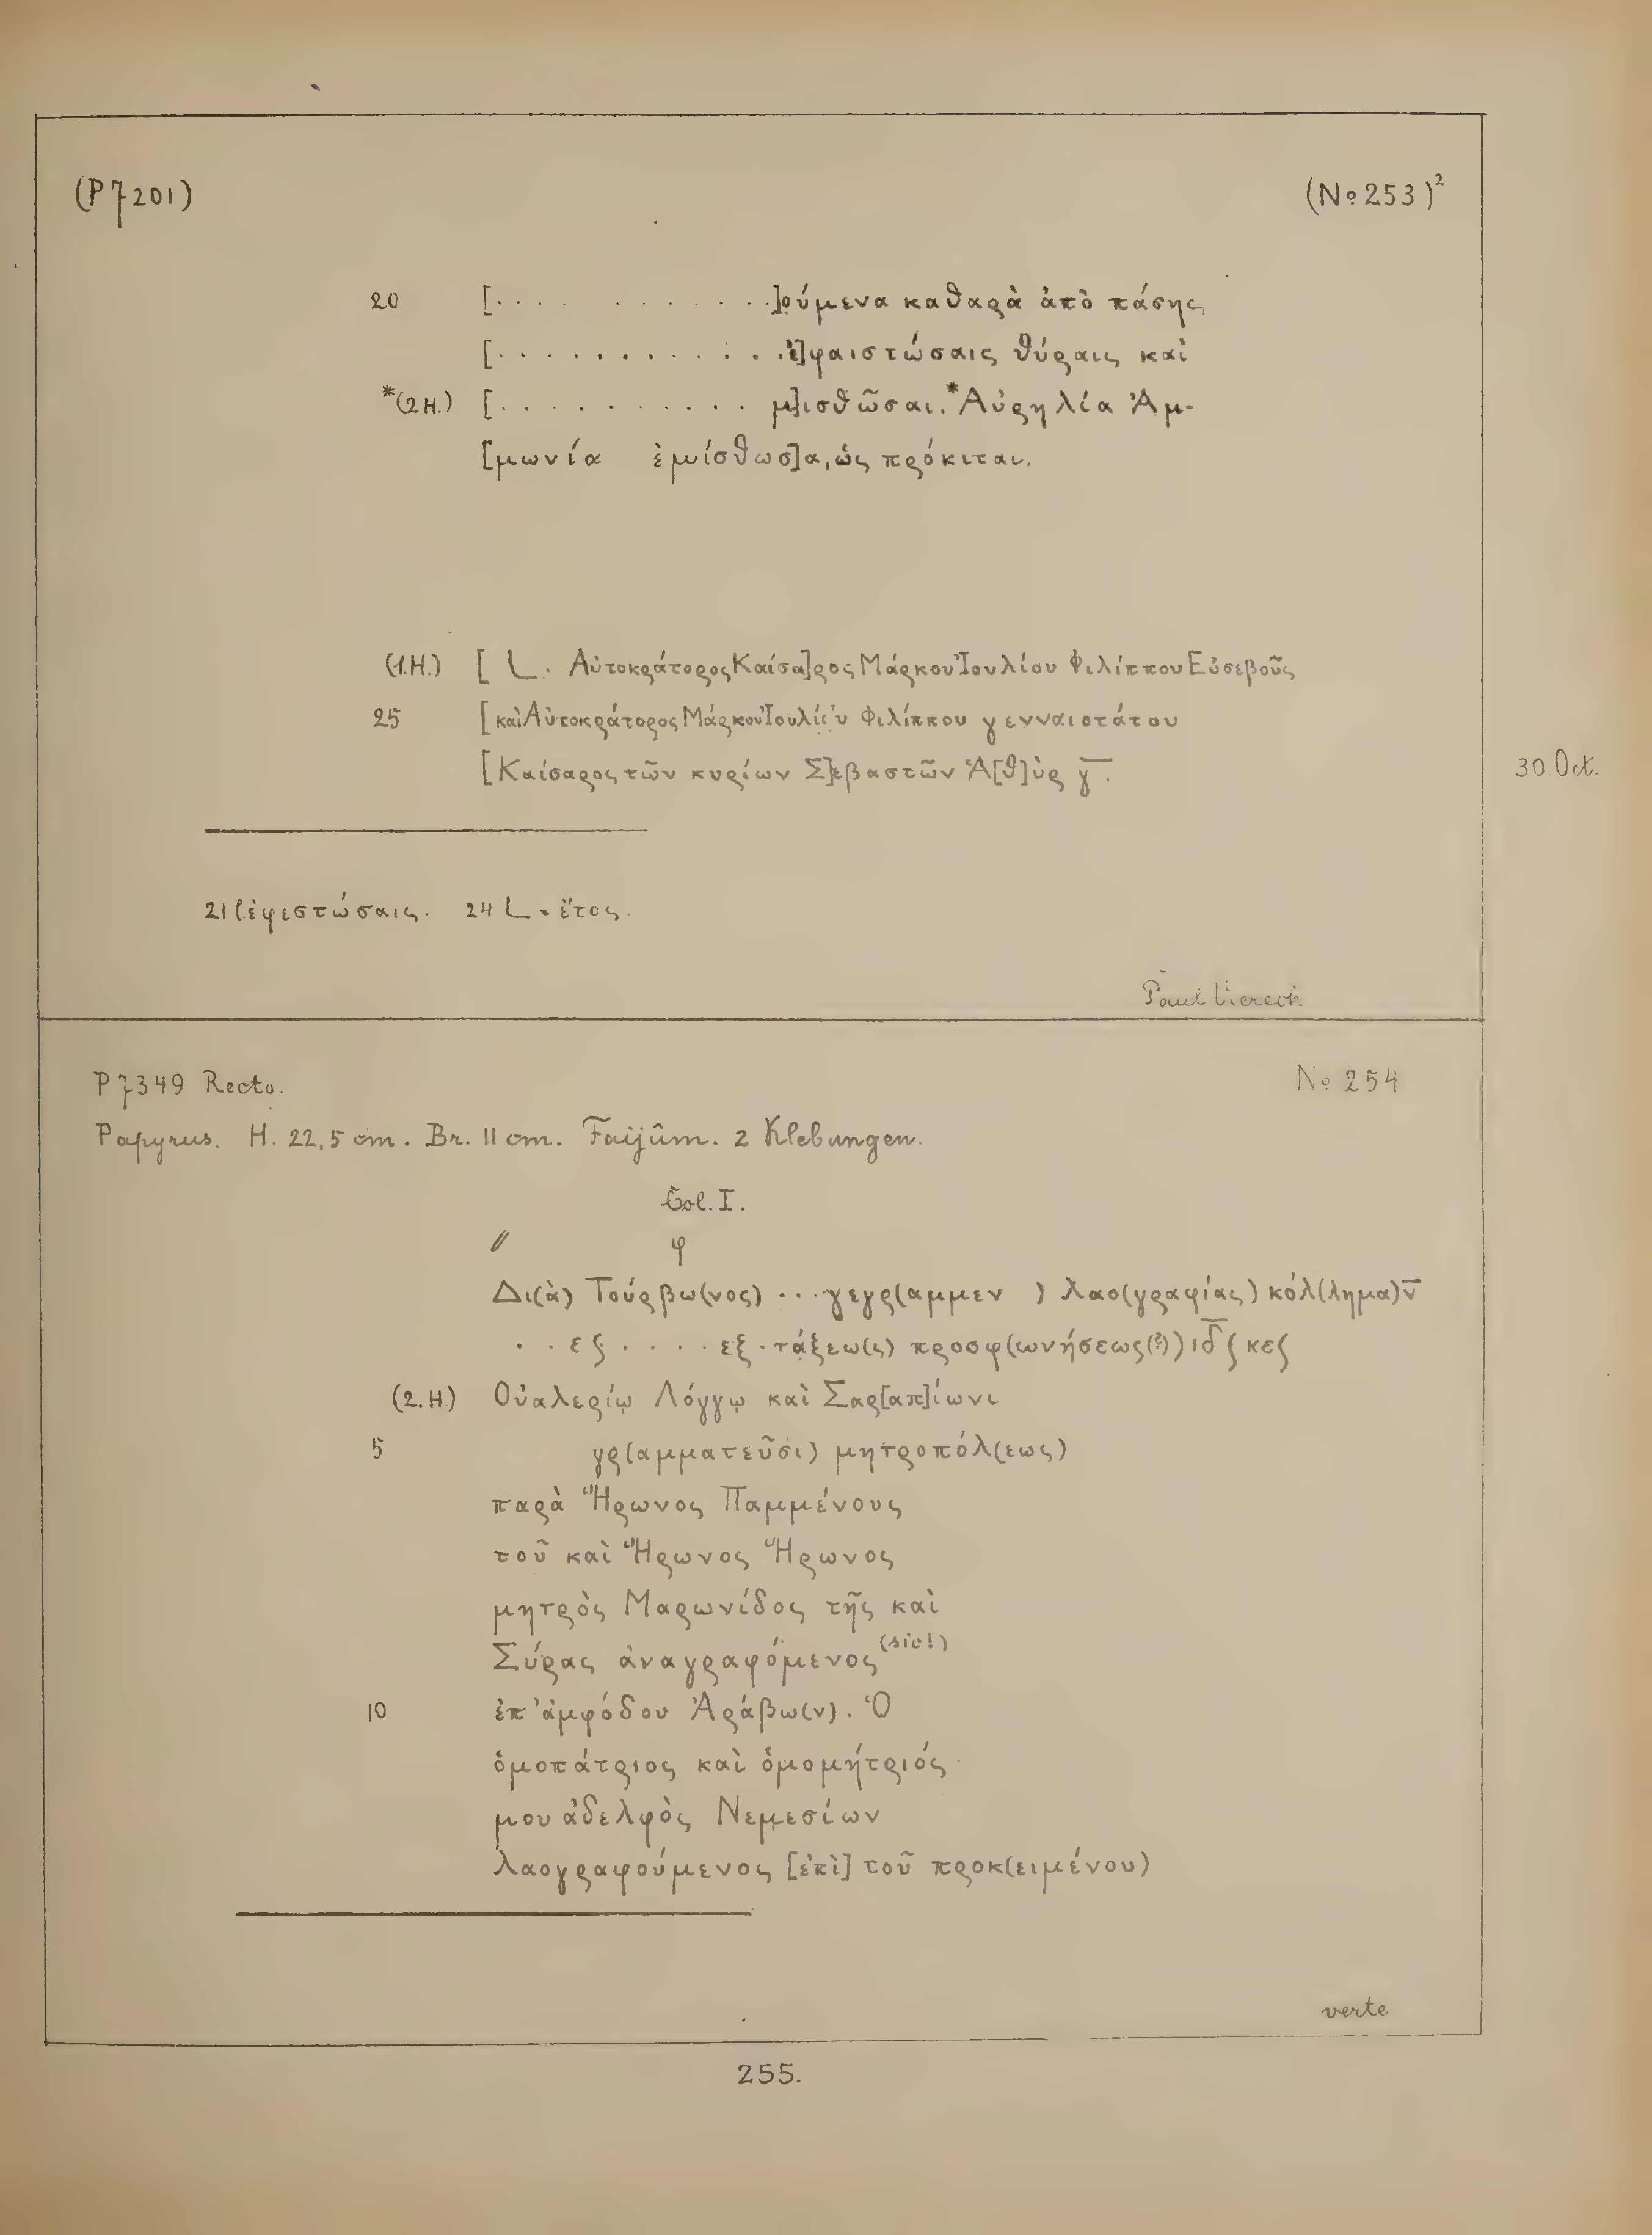 (P 7201) (No 253)²
20 [. . . . . . . . . . . .]ούμενα καθαρὰ ἀπὸ πάσης
[. . . . . . . . . . . . ἐ]φαιστώσαις θύραις καὶ
*(2 H.) [. . . . . . . . . . . μ]ισθῶσαι.* Αὐρηλία Ἀμ-
[μωνία ἐμίσθωσ]α, ὡς πρόκιται.
(1. H.) [ L . Αὐτοκράτορος Καίσα]ρος Μάρκου Ἰουλίου Φιλίππου Εὐσεβοῦς
25 [καὶ Αὐτοκράτορος Μάρκου Ἰουλίου Φιλίππου γενναιοτάτου
[Καίσαρος τῶν κυρίων Σ]εβαστῶν Ἁ[θ]ὺρ γ̅.
30. Oct.
21 l. ἐφεστώσαις. 24 L = ἔτος.
Paul Viereck
P 7349 Recto. No 254
Papyrus. H. 22,5 cm. Br. 11 cm. Faijûm. 2 Klebungen.
Col. I.
// φ
Δι(ὰ) Τούρβω(νος) . . . γεγρ(αμμεν ) λαο(γραφίας) κόλ(λημα) ν̅
. . ες . . . . εξ . τάξεω(ς) προσφ(ωνήσεως(?)) ιδ̅ ϛ κεϛ
(2. H.) Οὐαλερίῳ Λόγγῳ καὶ Σαρ[απ]ίωνι
5 γρ(αμματεῦσι) μητροπόλ(εως)
παρὰ Ἥρωνος Παμμένους
τοῦ καὶ Ἥρωνος Ἥρωνος
μητρὸς Μαρωνίδος τῆς καὶ
Σύρας ἀναγραφόμενος (sic!)
10 ἐπ' ἀμφόδου Ἀράβω(ν). Ὁ
ὁμοπάτριος καὶ ὁμομήτριός
μου ἀδελφὸς Νεμεσίων
λαογραφούμενος [ἐπὶ] τοῦ προκ(ειμένου)
verte
255.